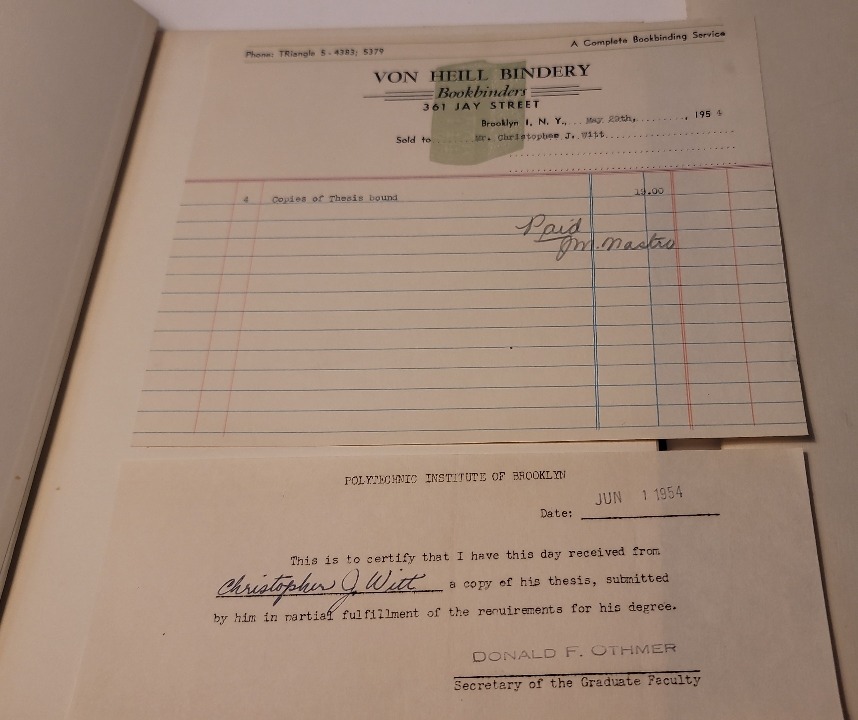 Phone: TRiangle 5 - 4383; 5379
A Complete Bookbinding Service
VON HEILL BINDERY
Bookbinders
361 JAY STREET
Brooklyn 1, N. Y., May 28th, 1954
Sold to Mr. Christopher J. Witt
4 Copies of Thesis bound 18.00
Paid
JM. Nastro
POLYTECHNIC INSTITUTE OF BROOKLYN
JUN 1 1954
Date:
This is to certify that I have this day received from
Christopher J. Witt a copy of his thesis, submitted
by him in partial fulfillment of the requirements for his degree.
DONALD F. OTHMER
Secretary of the Graduate Faculty